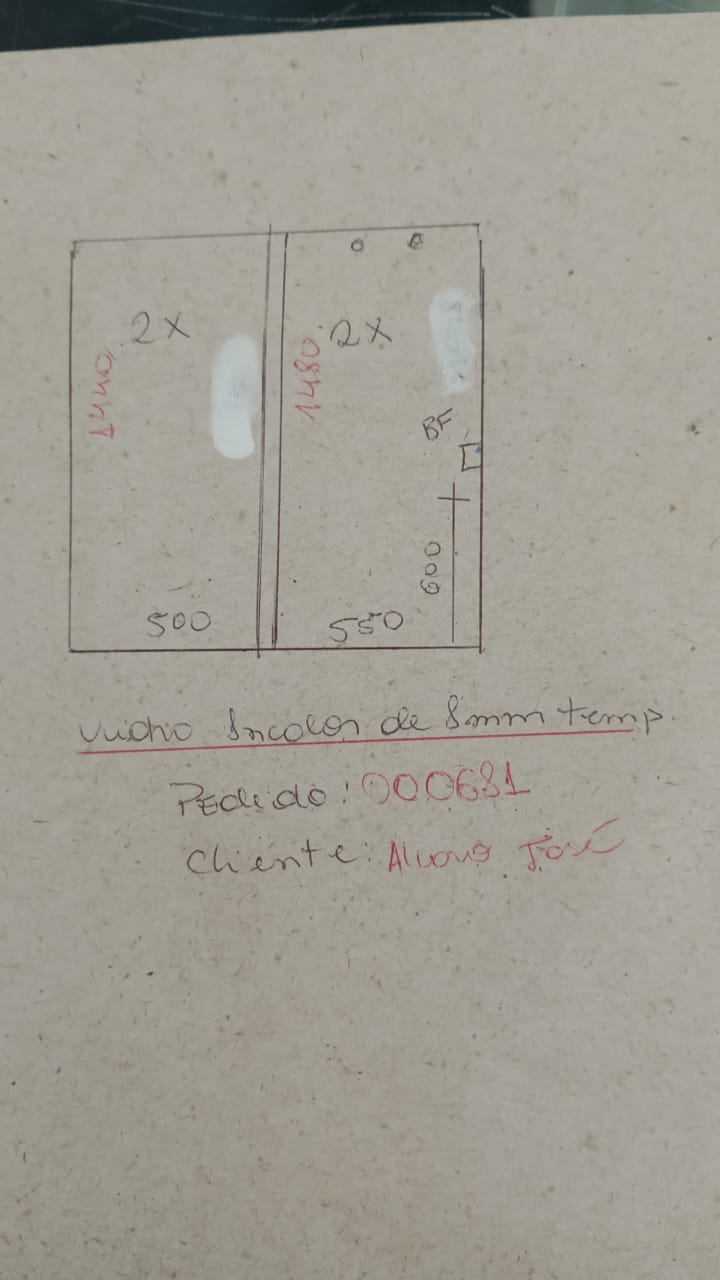 2X
1440
500
2X
1480
BF
600
550
Vidro Incolor de 8mm temp.
Pedido: 000681
Cliente: Alvaro José